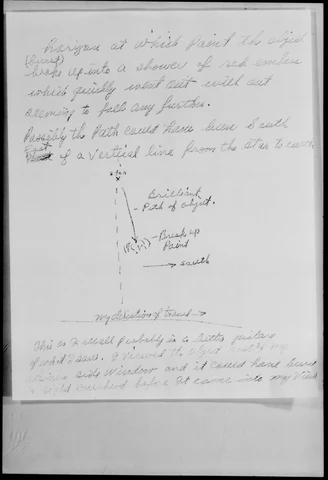 horizon at which point the object
(burst)
broke up into a shower of red embers
which quickly went out with out
seeming to fall any further.
Possibly the Path could have been South
East of a vertical line from the star to earth.
star
Brilliant
- Path of object.
- Break up
Point
→ south
my direction of travel →
This as I recall probably is a better picture
of what I saw. I viewed the object
side window and it could have been
overhead before it came into my View